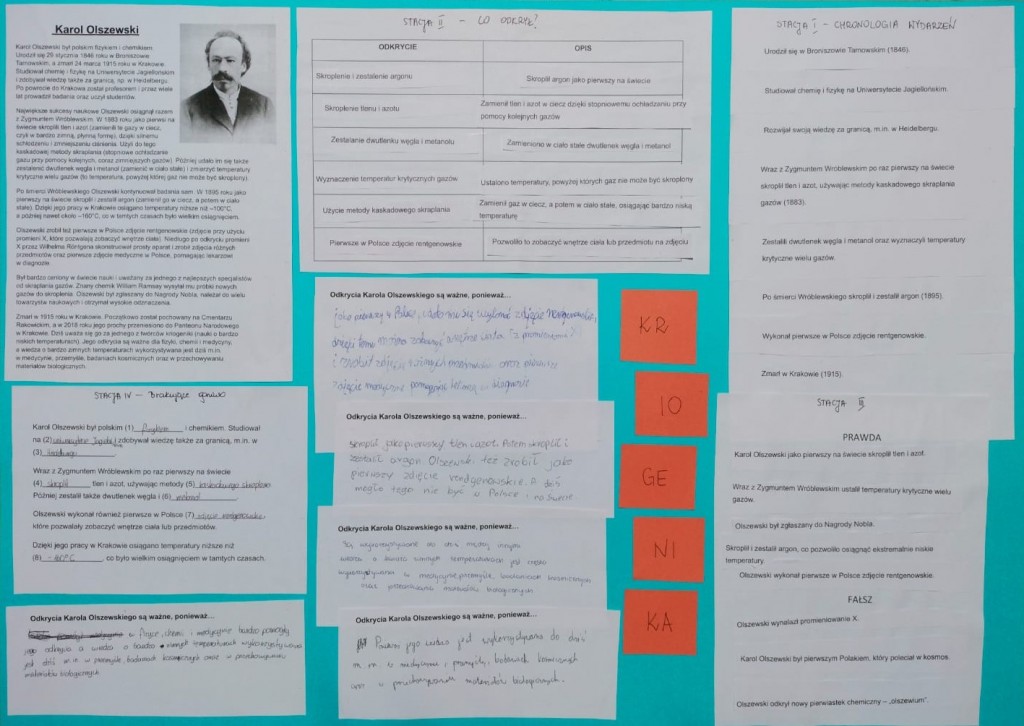 Karol Olszewski
Karol Olszewski był polskim fizykiem i chemikiem.
Urodził się 29 stycznia 1846 roku w Broniszowie
Tarnowskim, a zmarł 24 marca 1915 roku w Krakowie.
Studiował chemię i fizykę na Uniwersytecie Jagiellońskim
i zdobywał wiedzę także za granicą, np. w Heidelbergu.
Po powrocie do Krakowa został profesorem i przez wiele
lat prowadził badania oraz uczył studentów.
Największe sukcesy naukowe Olszewski osiągnął razem
z Zygmuntem Wróblewskim. W 1883 roku jako pierwsi na
świecie skroplili tlen i azot (zamienili te gazy w ciecz,
czyli w bardzo zimną, płynną formę), dzięki silnemu
schłodzeniu i zmniejszeniu ciśnienia. Użyli do tego
kaskadowej metody skraplania (stopniowe ochładzanie
gazu przy pomocy kolejnych, coraz zimniejszych gazów). Później udało im się także
zestalenić dwutlenek węgla i metanol (zamienić w ciało stałe) i zmierzyć temperatury
krytyczne wielu gazów (to temperatura, powyżej której gaz nie może być skroplony).
Po śmierci Wróblewskiego Olszewski kontynuował badania sam. W 1895 roku jako
pierwszy na świecie skroplił i zestalił argon (zamienił go w ciecz, a potem w ciało
stałe). Dzięki jego pracy w Krakowie osiągano temperatury niższe niż –100°C,
a później nawet około –160°C, co w tamtych czasach było wielkim osiągnięciem.
Olszewski zrobił też pierwsze w Polsce zdjęcie rentgenowskie (zdjęcie przy użyciu
promieni X, które pozwalają zobaczyć wnętrze ciała). Niedługo po odkryciu promieni
X przez Wilhelma Röntgena skonstruował prosty aparat i zrobił zdjęcia różnych
przedmiotów oraz pierwsze zdjęcie medyczne w Polsce, pomagając lekarzowi
w diagnozie.
Był bardzo ceniony w świecie nauki i uważany za jednego z najlepszych specjalistów
od skraplania gazów. Znany chemik William Ramsay wysyłał mu próbki nowych
gazów do skroplenia. Olszewski był zgłaszany do Nagrody Nobla, należał do wielu
towarzystw naukowych i otrzymał wysokie odznaczenia.
Zmarł w 1915 roku w Krakowie. Początkowo został pochowany na Cmentarzu
Rakowickim, a w 2018 roku jego prochy przeniesiono do Panteonu Narodowego
w Krakowie. Dziś uważa się go za jednego z twórców kriogeniki (nauki o bardzo
niskich temperaturach). Jego odkrycia są ważne dla fizyki, chemii i medycyny,
a wiedza o bardzo zimnych temperaturach wykorzystywana jest dziś m.in.
w medycynie, przemyśle, badaniach kosmicznych oraz w przechowywaniu
materiałów biologicznych.
STACJA II – CO ODKRYŁ?
ODKRYCIE OPIS
Skroplenie i zestalenie argonu Skroplił argon jako pierwszy na świecie
Skroplenie tlenu i azotu Zamienił tlen i azot w ciecz dzięki stopniowemu ochładzaniu przy
pomocy kolejnych gazów
Zestalanie dwutlenku węgla i metanolu Zamieniono w ciało stałe dwutlenek węgla i metanol
Wyznaczenie temperatur krytycznych gazów Ustalono temperaturę, powyżej których gaz nie może być skroplony
Użycie metody kaskadowego skraplania Zamienił gaz w ciecz, a potem w ciało stałe, osiągając bardzo niską
temperaturę
Pierwsze w Polsce zdjęcie rentgenowskie Pozwoliło to zobaczyć wnętrze ciała lub przedmiotu na zdjęciu
STACJA I – CHRONOLOGIA WYDARZEŃ
Urodził się w Broniszowie Tarnowskim (1846).
Studiował chemię i fizykę na Uniwersytecie Jagiellońskim.
Rozwijał swoją wiedzę za granicą, m.in. w Heidelbergu.
Wraz z Zygmuntem Wróblewskim po raz pierwszy na świecie
skroplił tlen i azot, używając metody kaskadowego skraplania
gazów (1883).
Zestalili dwutlenek węgla i metanol oraz wyznaczyli temperatury
krytyczne wielu gazów.
Po śmierci Wróblewskiego skroplił i zestalił argon (1895).
Wykonał pierwsze w Polsce zdjęcie rentgenowskie.
Zmarł w Krakowie (1915).
Odkrycia Karola Olszewskiego są ważne, ponieważ...
jako pierwszy w Polsce, udało mu się wykonać zdjęcie rentgenowskie,
dzięki temu można zobaczyć wnętrze ciała
i zrobił zdjęcia różnych przedmiotów oraz pierwsze
zdjęcie medyczne pomagając lekarzowi w diagnozie
Odkrycia Karola Olszewskiego są ważne, ponieważ...
skroplił jako pierwszy tlen i azot. Potem skroplił i
zestalił argon. Olszewski też zrobił jako
pierwszy zdjęcie rentgenowskie. A dziś
mogło tego nie być w Polsce i na świecie
Odkrycia Karola Olszewskiego są ważne, ponieważ...
Są wykorzystywane do dziś między innymi
wiedza o bardzo zimnych temperaturach jest często
wykorzystywana w medycynie, przemyśle, badaniach kosmicznych
oraz przechowywaniu materiałów biologicznych
Odkrycia Karola Olszewskiego są ważne, ponieważ...
jego wiedza jest wykorzystywana do dziś
m.in. w medycynie, przemyśle, badaniach kosmicznych
w przechowywaniu materiałów biologicznych.
KR
IO
GE
NI
KA
STACJA IV – Brakujące słowo
Karol Olszewski był polskim (1) fizykiem i chemikiem. Studiował
na (2) zdobywał wiedzę także za granicą, m.in. w
(3)
Wraz z Zygmuntem Wróblewskim po raz pierwszy na świecie
(4) skroplił tlen i azot, używając metody (5) kaskadowego skraplania
Później zestalił także dwutlenek węgla i (6) metanol
Olszewski wykonał również pierwsze w Polsce (7) zdjęcie rentgenowskie,
które pozwalały zobaczyć wnętrze ciała lub przedmiotów.
Dzięki jego pracy w Krakowie osiągano temperatury niższe niż
(8) , co było wielkim osiągnięciem w tamtych czasach.
Odkrycia Karola Olszewskiego są ważne, ponieważ...
w fizyce, chemii i medycynie bardzo pomogły
jego odkrycia a wiedza o bardzo zimnych temperaturach wykorzystywana
jest dziś m.in. w przemyśle, badaniach kosmicznych oraz w przechowywaniu
materiałów biologicznych
STACJA III
PRAWDA
Karol Olszewski jako pierwszy na świecie skroplił tlen i azot.
Wraz z Zygmuntem Wróblewskim ustalił temperatury krytyczne wielu
gazów.
Olszewski był zgłaszany do Nagrody Nobla.
Skroplił i zestalił argon, co pozwoliło osiągnąć ekstremalnie niskie
temperatury.
Olszewski wykonał pierwsze w Polsce zdjęcie rentgenowskie.
FAŁSZ
Olszewski wynalazł promieniowanie X.
Karol Olszewski był pierwszym Polakiem, który poleciał w kosmos.
Olszewski odkrył nowy pierwiastek chemiczny – „olszewium".